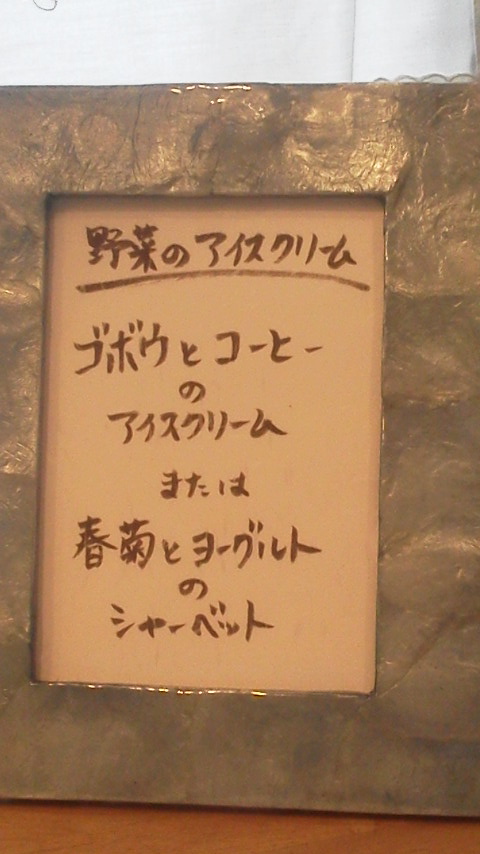 野菜のアイスクリーム
ゴボウとコーヒー
の
アイスクリーム
または
春菊とヨーグルト
の
シャーベット